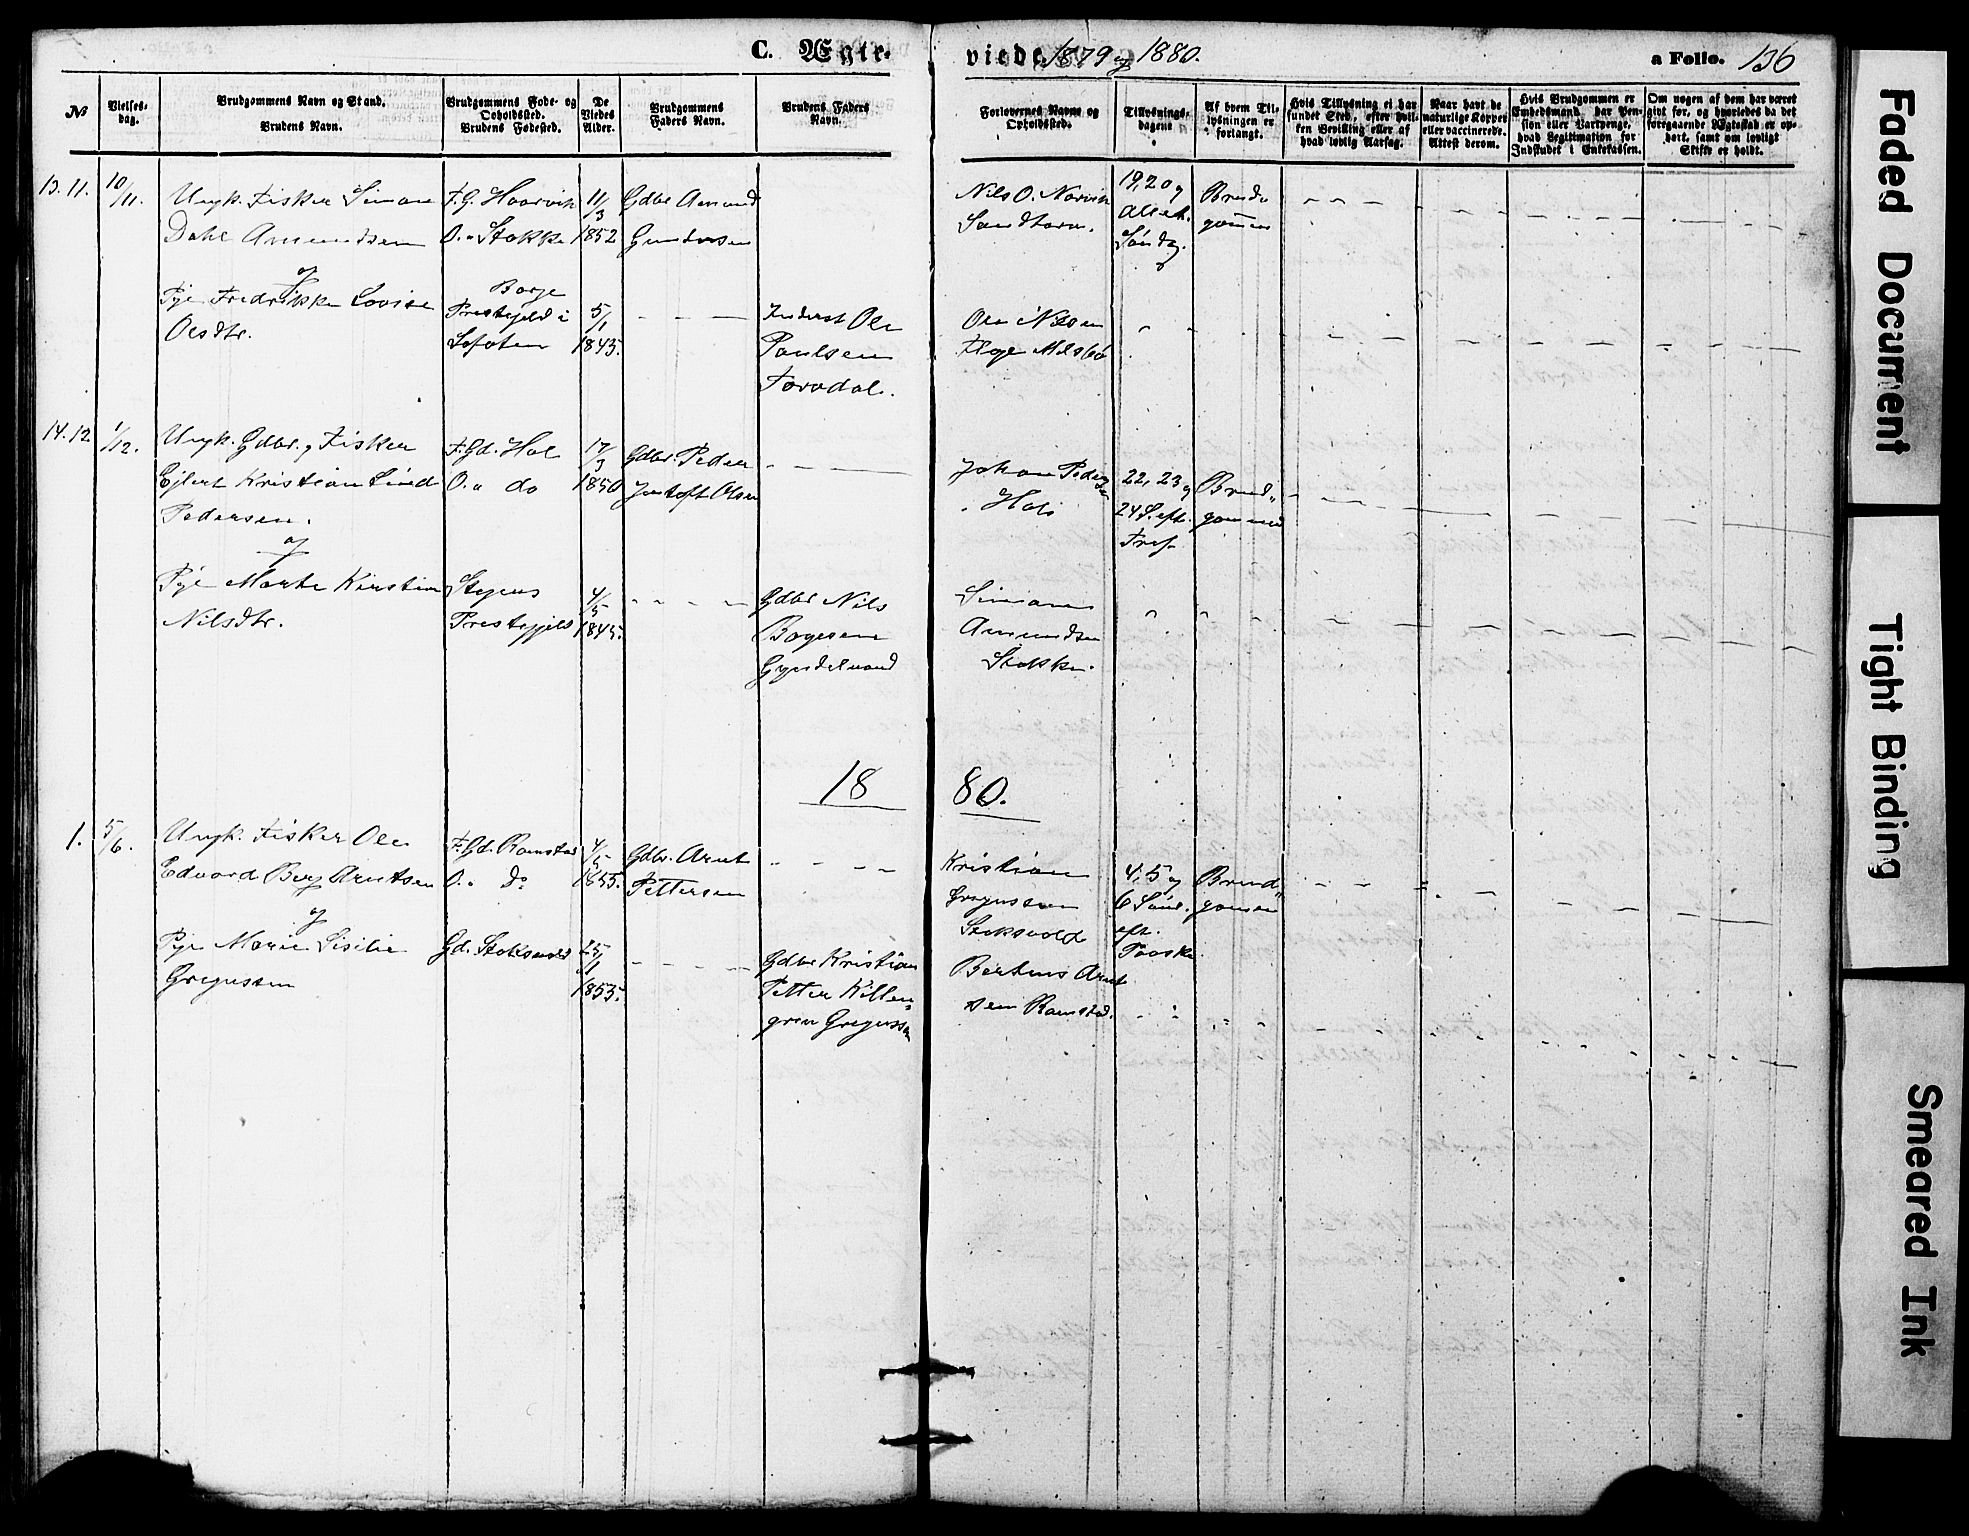 C. Ægte-
viede 1879 og 1880.
a Folio. 136
No
Vielses-
dag.
Brudgommens Navn og Stand.
Brudens Navn.
Brudgommens Føde- og
Opholdssted.
Brudens Fødested.
De
Viedes
Alder.
Brudgommens
Faders Navn.
Brudens Faders
Navn.
Forlovernes Navne og
Opholdssted.
Tillysnings-
dagene
Af hvem Til-
lysningen er
forlangt.
Hvis Tillysning ei har
fundet Sted, efter hvil-
ken Bevilling eller af
hvad lovlig Aarsag.
Naar havt de
naturlige Kopper
eller vaccinerede.
Attest derom.
Hvis Brudgommen er
Embedsmand, har Pen-
sion eller Vartpenge,
hvad Legitimation for
Indskudet i Enkekassen.
Om nogen af dem har været
gift før, og hvorledes da det
foregaaende Ægteskab er op-
hørt, samt om lovligt
Skifte er holdt.
13. 11.
10/11.
Ungk. Fisker Simon
Dahl Amundsen
og
Pige Fredrikke Lovise
Olsdtr.
F. G. Haarvik
O. " Stokke
Borge
Prestegjeld i
Lofoten
11/3
1852
5/1
1845.
Gdbr Amund
Gundersen
Inderst Ole
Paulsen
Torvdal.
Nils O. Narvik
Sandtorv.
Ole Nilsen
19, 20 og
Søndag.
Brud-
gommen
14. 12
1/12.
Ungk. Gdbr. og Fisker
Ejlert Kristian Lind
Pedersen.
og
Pige Marte Kirstine
Nilsdtr.
F. Gd. Hol
O. " do
Stegens
Prestegjeld
17/3
1850
4/5
1845.
Gdbr. Peder
Jentoft Olsen
Gdbr Nils
Bogesen
Johan Peder
sen
Hol
Simon
Amundsen
Stokke.
22, 23 og
24 S. eft.
Tref.
Brud-
gommen
18 80.
1.
5/6.
Ungk. Fisker Ole
Edvard Berg Arntsen
og
Pige Marie Sisilie
Gregussen
F. Gd. Ramstad
O. " do
Gd. Stoksvold
4/5
1855.
25/1
1853.
Gdbr. Arnt
Pettersen
Gdbr Kristian
Petter Killen-
gren Gregussen
Kristian
Gregussen
Stoksvold
Bertius Arnt
sen Ramstad.
4, 5 og
6 Sønd.
eft.
Paaske
Brud-
gommen
Faded Document
Tight Binding
Smeared Ink